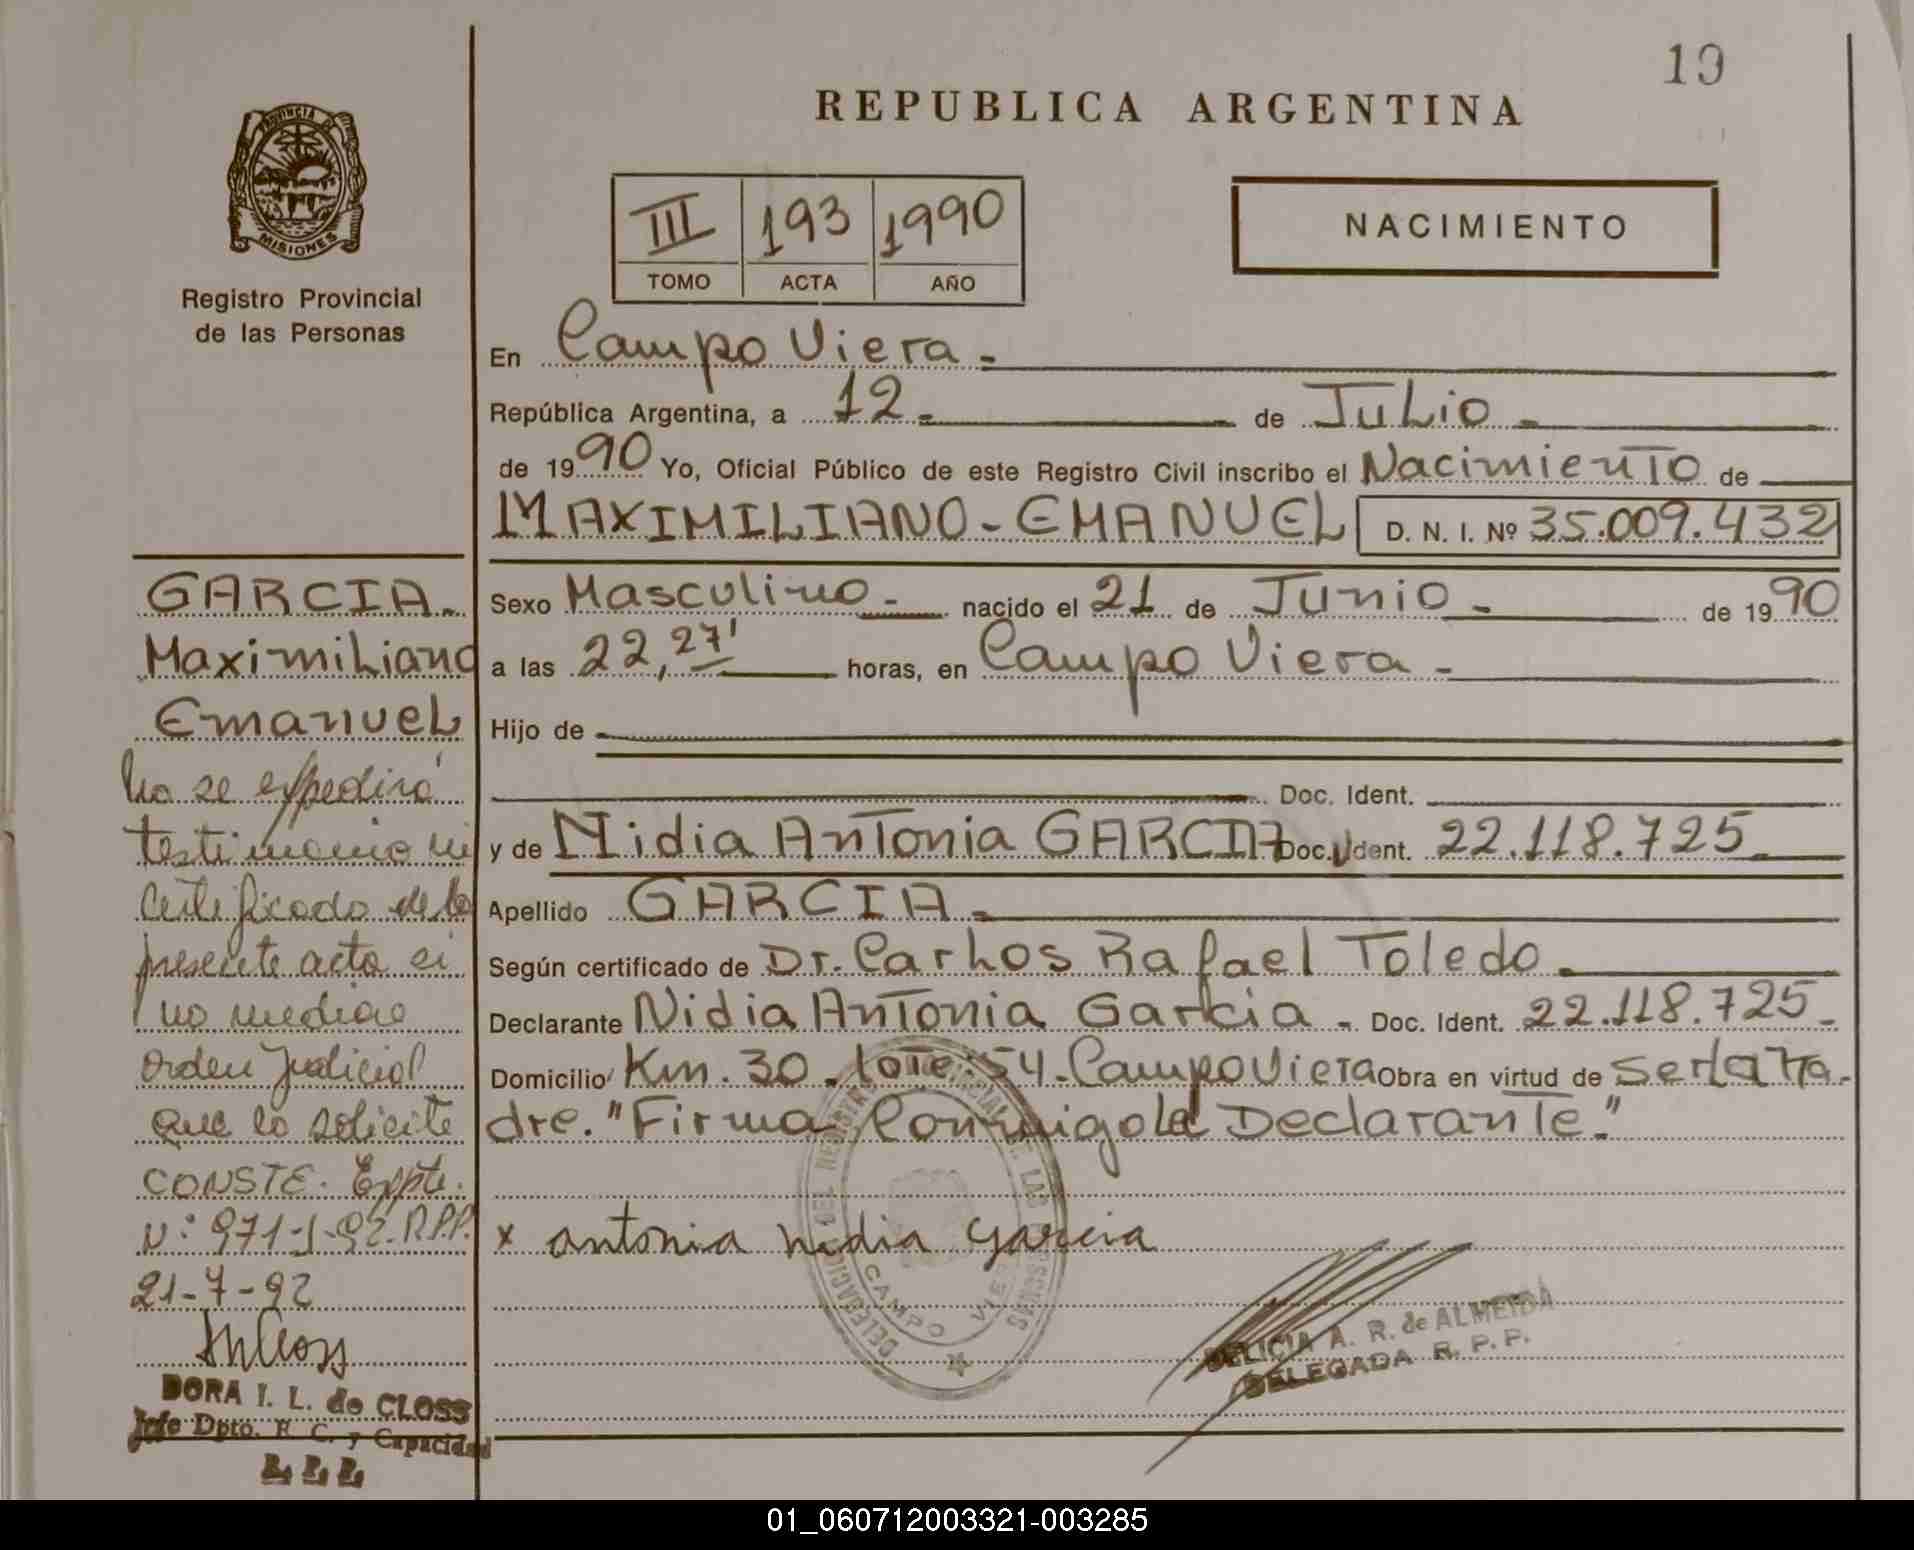 19
REPUBLICA ARGENTINA
PROVINCIA DE
MISIONES
Registro Provincial
de las Personas
III 193 1990
TOMO ACTA AÑO
NACIMIENTO
En Campo Viera.-
República Argentina, a 12.- de Julio.-
de 1990 Yo, Oficial Público de este Registro Civil inscribo el Nacimiento de
MAXIMILIANO-EMANUEL D. N. I. Nº 35.009.432
Sexo Masculino.- nacido el 21 de Junio.- de 1990
a las 22,27' horas, en Campo Viera.-
Hijo de
Doc. Ident.
y de Nidia Antonia GARCIA Doc. Ident. 22.118.725.
Apellido GARCIA.-
Según certificado de Dr. Carlos Rafael Toledo.
Declarante Nidia Antonia Garcia.- Doc. Ident. 22.118.725.-
Domicilio Km. 30. Lote: 54. Campo Viera Obra en virtud de Ser la Ma-
dre. "Firma Conmigo la Declarante."
x antonia nidia garcia
CAMPO VIERA
DELICIA A. R. de ALMEIDA
DELEGADA R. P. P.
GARCIA.
Maximiliano
Emanuel
No se expedirá
testimonio ni
certificado de la
presente acta si
no media
orden judicial
que lo solicite
CONSTE. Expte.
Nº: 971-J-92. R.P.P.
21-7-92
DORA I. L. de CLOSS
Jefe Dpto. E. C. y Capacidad
01_060712003321-003285